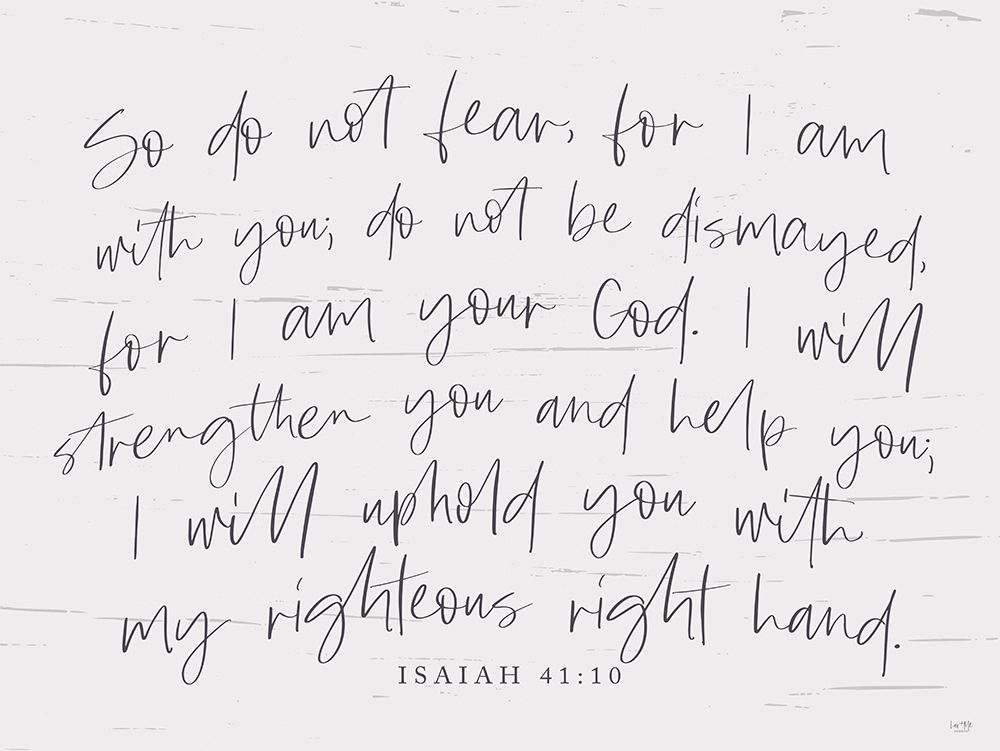 So do not fear, for I am
with you; do not be dismayed,
for I am your God. I will
strengthen you and help you;
I will uphold you with
my righteous right hand.
ISAIAH 41:10
Lux + Me